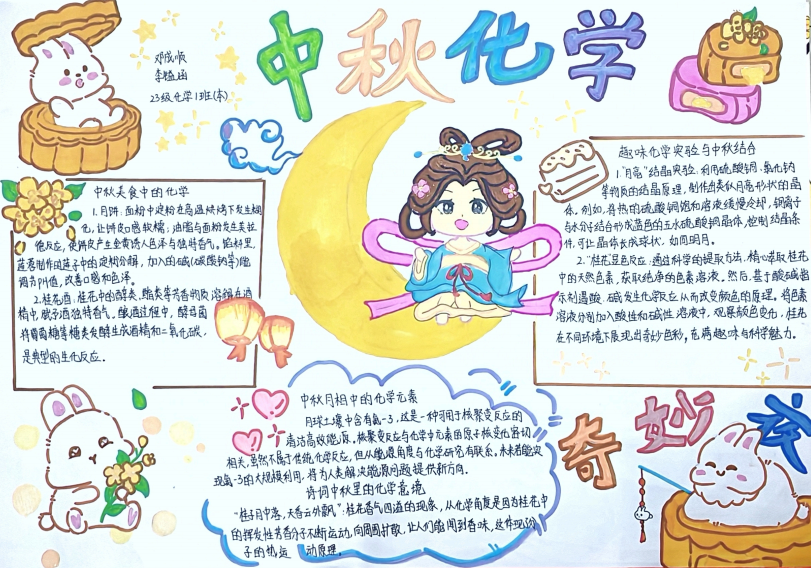 中秋化学
邓成顺
23级化学1班(本)
中秋美食中的化学
1.月饼:面粉中淀粉在高温烘烤下发生糊
化,让饼皮口感软糯,油脂与面粉发生美拉
德反应,使饼皮产生金黄诱人色泽与独特香气。馅料里,
莲蓉制作时莲子中的淀粉分解,加入的碱(碳酸钠等)能
调节pH值,改善口感和色泽。
2.桂花酒:桂花中的醇类、酯类等芳香物质溶解在酒
精中,赋予酒独特香气。酿酒过程中,酵母菌
将葡萄糖等糖类发酵生成酒精和二氧化碳,
是典型的生化反应。
趣味化学实验与中秋结合
1."月亮"结晶实验:利用硫酸铜、氯化钠
等物质的结晶原理,制作出类似月亮形状的晶
体。例如,将热的硫酸铜饱和溶液缓慢冷却,铜离子
与水分子结合形成蓝色的五水硫酸铜晶体,控制结晶条
件,可让晶体长成球状,如同明月。
2."桂花显色反应:通过科学的提取方法,精心萃取桂花
中的天然色素,获取纯净的色素溶液。然后,基于酸碱指
示剂遇酸、碱发生化学反应从而改变颜色的原理。将色素
溶液分别加入酸性和碱性溶液中,观察颜色变化,桂花
在不同环境下展现出奇妙色彩,充满趣味与科学魅力。
中秋月相中的化学元素
月球土壤中含有氦-3,这是一种可用于核聚变反应的
清洁高效能源,核聚变反应与化学中元素的原子核变化密切
相关,虽然不属于传统化学反应,但从能源角度与化学研究有联系,未来若能实
现氦-3的大规模利用,将为人类解决能源问题提供新方向。
诗词中秋里的化学意境
"桂子月中落,天香云外飘":桂花香气四溢的现象,从化学角度是因为桂花中
的挥发性芳香分子不断运动,向周围扩散,让人们能闻到香味,这体现分
子的热运动原理。
奇妙夜